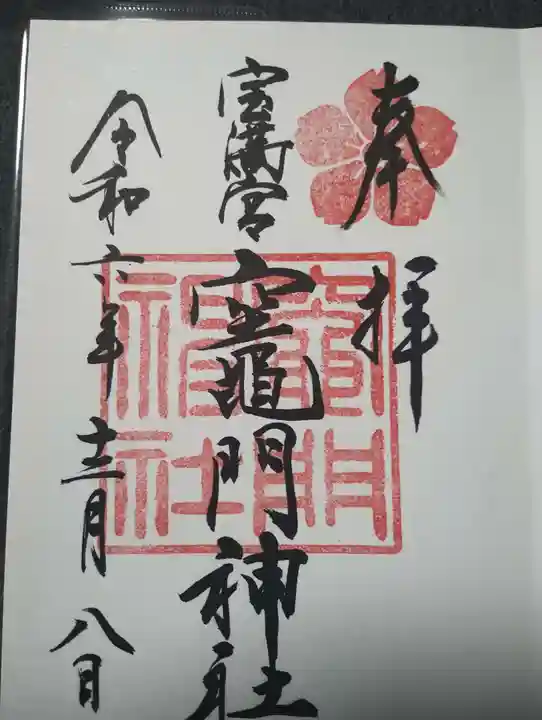 奉拝
宝満宮 竈門神社
令和六年十二月八日
竈門
神社